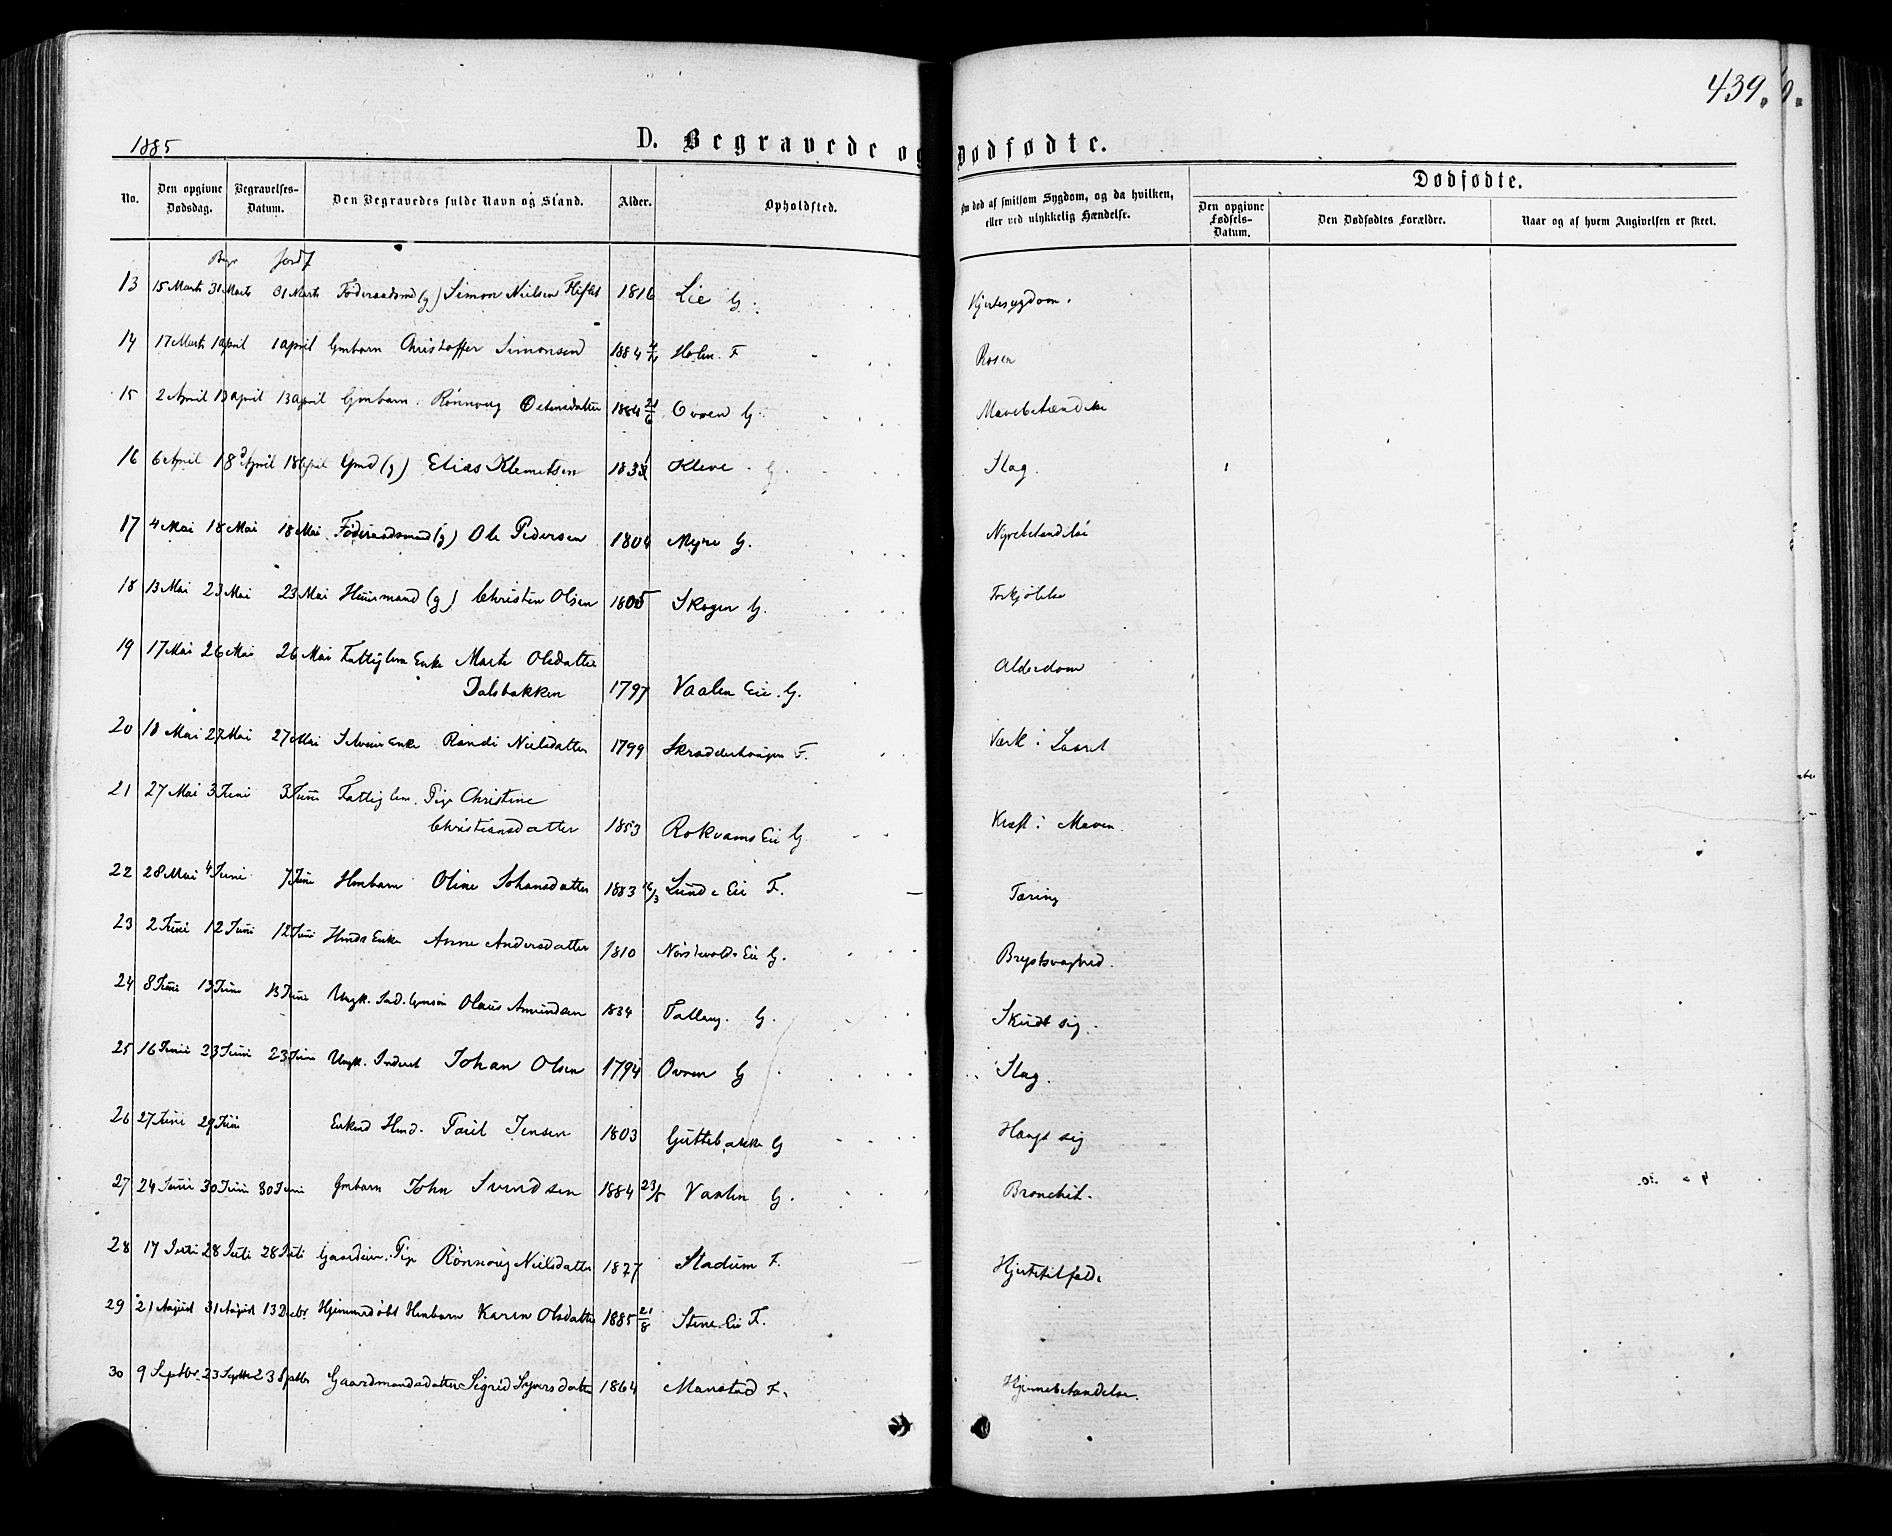 439.
1885
D. Begravede og Dødfødte.
No.
Den opgivne Dødsdag.
Begravelses-Datum.
Den Begravedes fulde Navn og Stand.
Alder.
Opholdsted.
Om død af smitsom Sygdom, og da hvilken, eller ved ulykkelig Hændelse.
Dødfødte.
Den opgivne Fødsels-Datum.
Den Dødfødtes Forældre.
Naar og af hvem Angivelsen er skeet.
Begr Jordf
13 15 Marts 31 Marts 31 Marts Føderaadsmd (g) Simon Nielsen 1816 Lie G. Hjertesygdom.
14 17 Marts 1 April 1 April Gmbarn Christoffer Simonsen 1884 Holm F Rosen
15 2 April 13 April 13 April Gmbarn. Rønnoug Ostensdatter 1884 21/6 Ovren G. Mavebetændelse
16 6 April 18 April 18 April Gmd (g) Elias Klemetsen Kleve G. Slag.
17 4 Mai 18 Mai 18 Mai Føderaadsmand (g) Ole Pedersen 1804 Myre G. Nyrebetændelse
18 13 Mai 23 Mai 23 Mai Huusmand (g) Christen Olsen 1805 Skogen G. Forkjølelse
19 17 Mai 26 Mai 26 Mai Fattiglem Enke Marte Olsdatter
Dalsbakken 1797 Vaalen Eie. G. Alderdom
20 18 Mai 27 Mai 27 Mai Selveier Enke Randi Nielsdatter 1799 Skradderhaugen F. Værk i Laaret
21 27 Mai 3 Juni 3 Juni Fattiglem. Pige Christine
Christiansdatter 1853 Rokvams Eie G. Kræft i Maven.
22 28 Mai 4 Juni 7 Juni Hmbarn Oline Johansdatter 1883 16/3 Lunde Eie F. Tæring
23 2 Juni 12 Juni 12 Juni Hmds Enke Anne Andersdatter 1810 Eie G. Brystsvaghed.
24 8 Juni 13 Juni 13 Juni Ungk. Ind. Gmsøn Olaus Amundsen 1834 Tallaug. G. Skudt sig.
25 16 Juni 23 Juni 23 Juni Ungk. Inderst Johan Olsen 1794 Ovren G Slag.
26 27 Juni 29 Juni Enkmd Hmd. Paul Jensen 1803 Guttebakke G Hængt sig
27 24 Juni 30 Juni 30 Juni Gmbarn John Svendsen 1884 23/5 Vaalen G. Bronchit.
28 17 Juli 28 Juli 28 Juli Gaardeier. Pige Rønnoug Nielsdatter 1827 Stadum F. Hjertetilfælde
29 21 August 31 August 13 Decbr. Hjemmedøbt Hmbarn Karen Olsdatter 1885 21/8 Stene Eie F.
30 9 Septbr. 23 Septbr 23 Septbr Gaardmandsdatter Sigrid Syversdatter 1864 Manstad F. Hjernebetændelse.